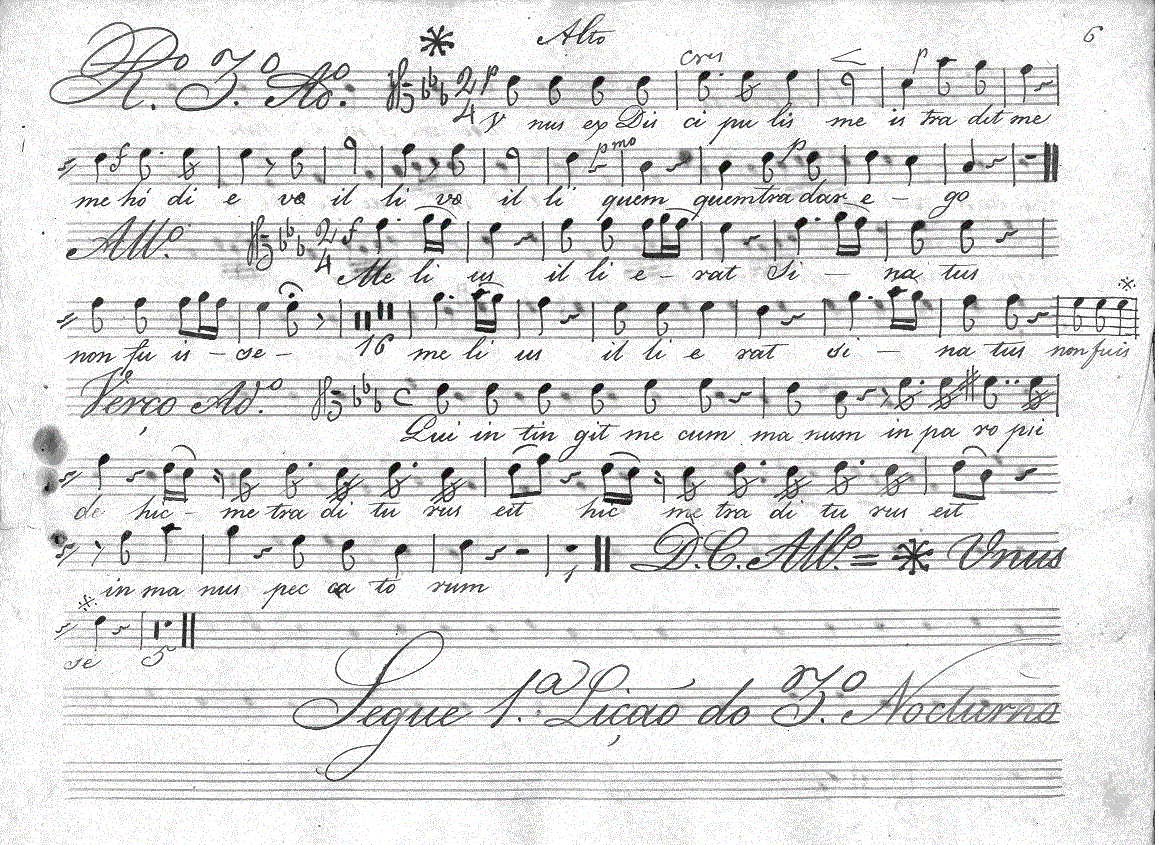 Alto
6
R.º 3.º Ad.º
cres
p
2/4 p
V nus ex Dis ci pu lis me is tra det me
f
pmo
p
me hó di e væ il li væ il li quem quem tra dar e - go
All.º 2/4 f
Me li us il li e - rat si - na tus
non fu is - se - 16 me li us il li e rat si - na tus non fuis
Verço Ad.º C
Qui in tin git me cum ma num in pa ro psi
de hic - me tra di tu rus est hic me tra di tu rus est
D.C. All.º = Unus
in ma nus pec ca to rum
se 5
Segue 1.ª Lição do 3.º Nocturno